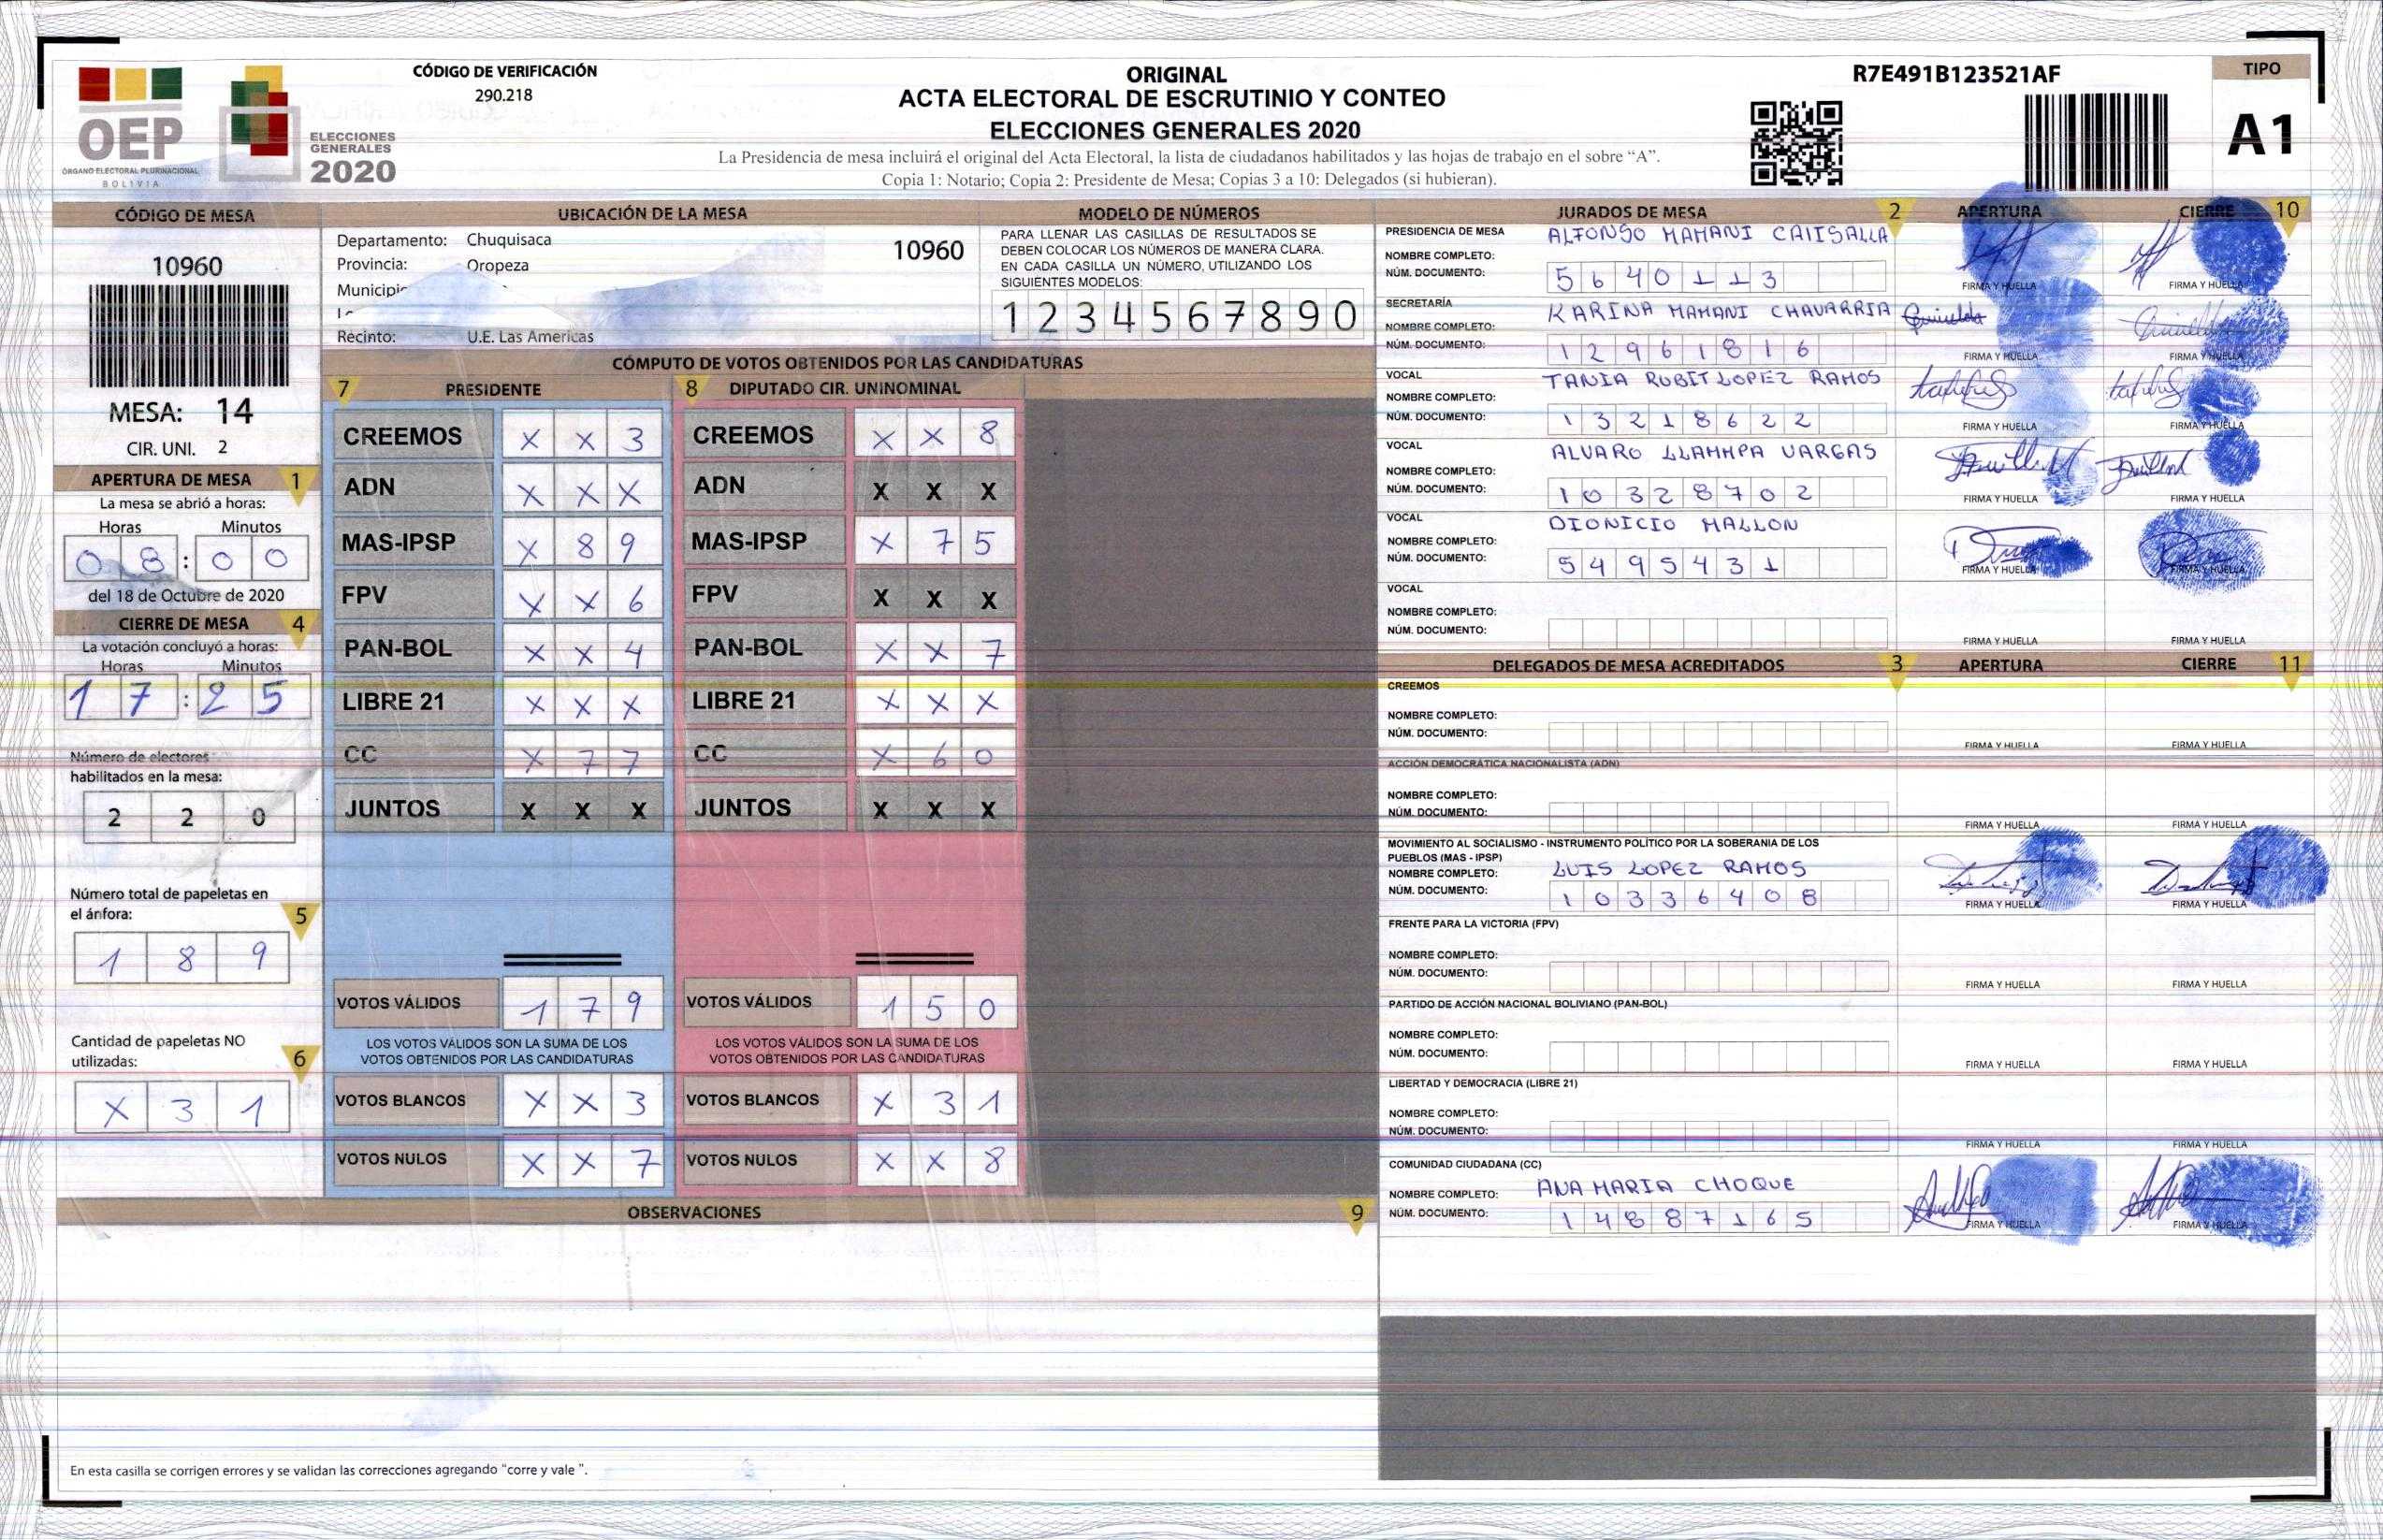 OEP
ÓRGANO ELECTORAL PLURINACIONAL
BOLIVIA
ELECCIONES
GENERALES
2020
CÓDIGO DE VERIFICACIÓN
290.218
ORIGINAL
ACTA ELECTORAL DE ESCRUTINIO Y CONTEO
ELECCIONES GENERALES 2020
La Presidencia de mesa incluirá el original del Acta Electoral, la lista de ciudadanos habilitados y las hojas de trabajo en el sobre “A”.
Copia 1: Notario; Copia 2: Presidente de Mesa; Copias 3 a 10: Delegados (si hubieran).
R7E491B123521AF
TIPO
A1
CÓDIGO DE MESA
10960
MESA: 14
CIR. UNI. 2
APERTURA DE MESA 1
La mesa se abrió a horas:
Horas Minutos
08:00
del 18 de Octubre de 2020
CIERRE DE MESA 4
La votación concluyó a horas:
Horas Minutos
17:25
Número de electores
habilitados en la mesa:
2 2 0
Número total de papeletas en
el ánfora: 5
1 8 9
Cantidad de papeletas NO
utilizadas: 6
X 3 1
UBICACIÓN DE LA MESA
Departamento: Chuquisaca
10960
Provincia: Oropeza
Recinto: U.E. Las Americas
MODELO DE NÚMEROS
PARA LLENAR LAS CASILLAS DE RESULTADOS SE
DEBEN COLOCAR LOS NÚMEROS DE MANERA CLARA.
EN CADA CASILLA UN NÚMERO, UTILIZANDO LOS
SIGUIENTES MODELOS:
1 2 3 4 5 6 7 8 9 0
CÓMPUTO DE VOTOS OBTENIDOS POR LAS CANDIDATURAS
7 PRESIDENTE 8 DIPUTADO CIR. UNINOMINAL
CREEMOS X X 3 CREEMOS X X 8
ADN X X X ADN X X X
MAS-IPSP X 8 9 MAS-IPSP X 7 5
FPV X X 6 FPV X X X
PAN-BOL X X 4 PAN-BOL X X 7
LIBRE 21 X X X LIBRE 21 X X X
CC X 7 7 CC X 6 0
JUNTOS X X X JUNTOS X X X
VOTOS VÁLIDOS 1 7 9 VOTOS VÁLIDOS 1 5 0
LOS VOTOS VÁLIDOS SON LA SUMA DE LOS LOS VOTOS VÁLIDOS SON LA SUMA DE LOS
VOTOS OBTENIDOS POR LAS CANDIDATURAS VOTOS OBTENIDOS POR LAS CANDIDATURAS
VOTOS BLANCOS X X 3 VOTOS BLANCOS X 3 1
VOTOS NULOS X X 7 VOTOS NULOS X X 8
OBSERVACIONES 9
En esta casilla se corrigen errores y se validan las correcciones agregando “corre y vale ”.
JURADOS DE MESA 2 APERTURA CIERRE 10
PRESIDENCIA DE MESA
NOMBRE COMPLETO: ALFONSO MAMANI
NÚM. DOCUMENTO: 5640113
FIRMA Y HUELLA FIRMA Y HUELLA
SECRETARÍA
NOMBRE COMPLETO: KARINA MAMANI CHAVARRIA
NÚM. DOCUMENTO: 12961816
FIRMA Y HUELLA FIRMA Y HUELLA
VOCAL
NOMBRE COMPLETO: TANIA RUBIT LOPEZ RAMOS
NÚM. DOCUMENTO: 13218622
FIRMA Y HUELLA FIRMA Y HUELLA
VOCAL
NOMBRE COMPLETO: ALVARO LLAMMPA VARGAS
NÚM. DOCUMENTO: 10328702
FIRMA Y HUELLA FIRMA Y HUELLA
VOCAL
NOMBRE COMPLETO: DIONICIO MALLON
NÚM. DOCUMENTO: 5495431
FIRMA Y HUELLA FIRMA Y HUELLA
VOCAL
NOMBRE COMPLETO:
NÚM. DOCUMENTO:
FIRMA Y HUELLA FIRMA Y HUELLA
DELEGADOS DE MESA ACREDITADOS 3 APERTURA CIERRE 11
CREEMOS
NOMBRE COMPLETO:
NÚM. DOCUMENTO:
FIRMA Y HUELLA FIRMA Y HUELLA
ACCIÓN DEMOCRÁTICA NACIONALISTA (ADN)
NOMBRE COMPLETO:
NÚM. DOCUMENTO:
FIRMA Y HUELLA FIRMA Y HUELLA
MOVIMIENTO AL SOCIALISMO - INSTRUMENTO POLÍTICO POR LA SOBERANIA DE LOS
PUEBLOS (MAS - IPSP)
NOMBRE COMPLETO: LUIS LOPEZ RAMOS
NÚM. DOCUMENTO: 10336408
FIRMA Y HUELLA FIRMA Y HUELLA
FRENTE PARA LA VICTORIA (FPV)
NOMBRE COMPLETO:
NÚM. DOCUMENTO:
FIRMA Y HUELLA FIRMA Y HUELLA
PARTIDO DE ACCIÓN NACIONAL BOLIVIANO (PAN-BOL)
NOMBRE COMPLETO:
NÚM. DOCUMENTO:
FIRMA Y HUELLA FIRMA Y HUELLA
LIBERTAD Y DEMOCRACIA (LIBRE 21)
NOMBRE COMPLETO:
NÚM. DOCUMENTO:
FIRMA Y HUELLA FIRMA Y HUELLA
COMUNIDAD CIUDADANA (CC)
NOMBRE COMPLETO: ANA MARIA CHOQUE
NÚM. DOCUMENTO: 14887165
FIRMA Y HUELLA FIRMA Y HUELLA